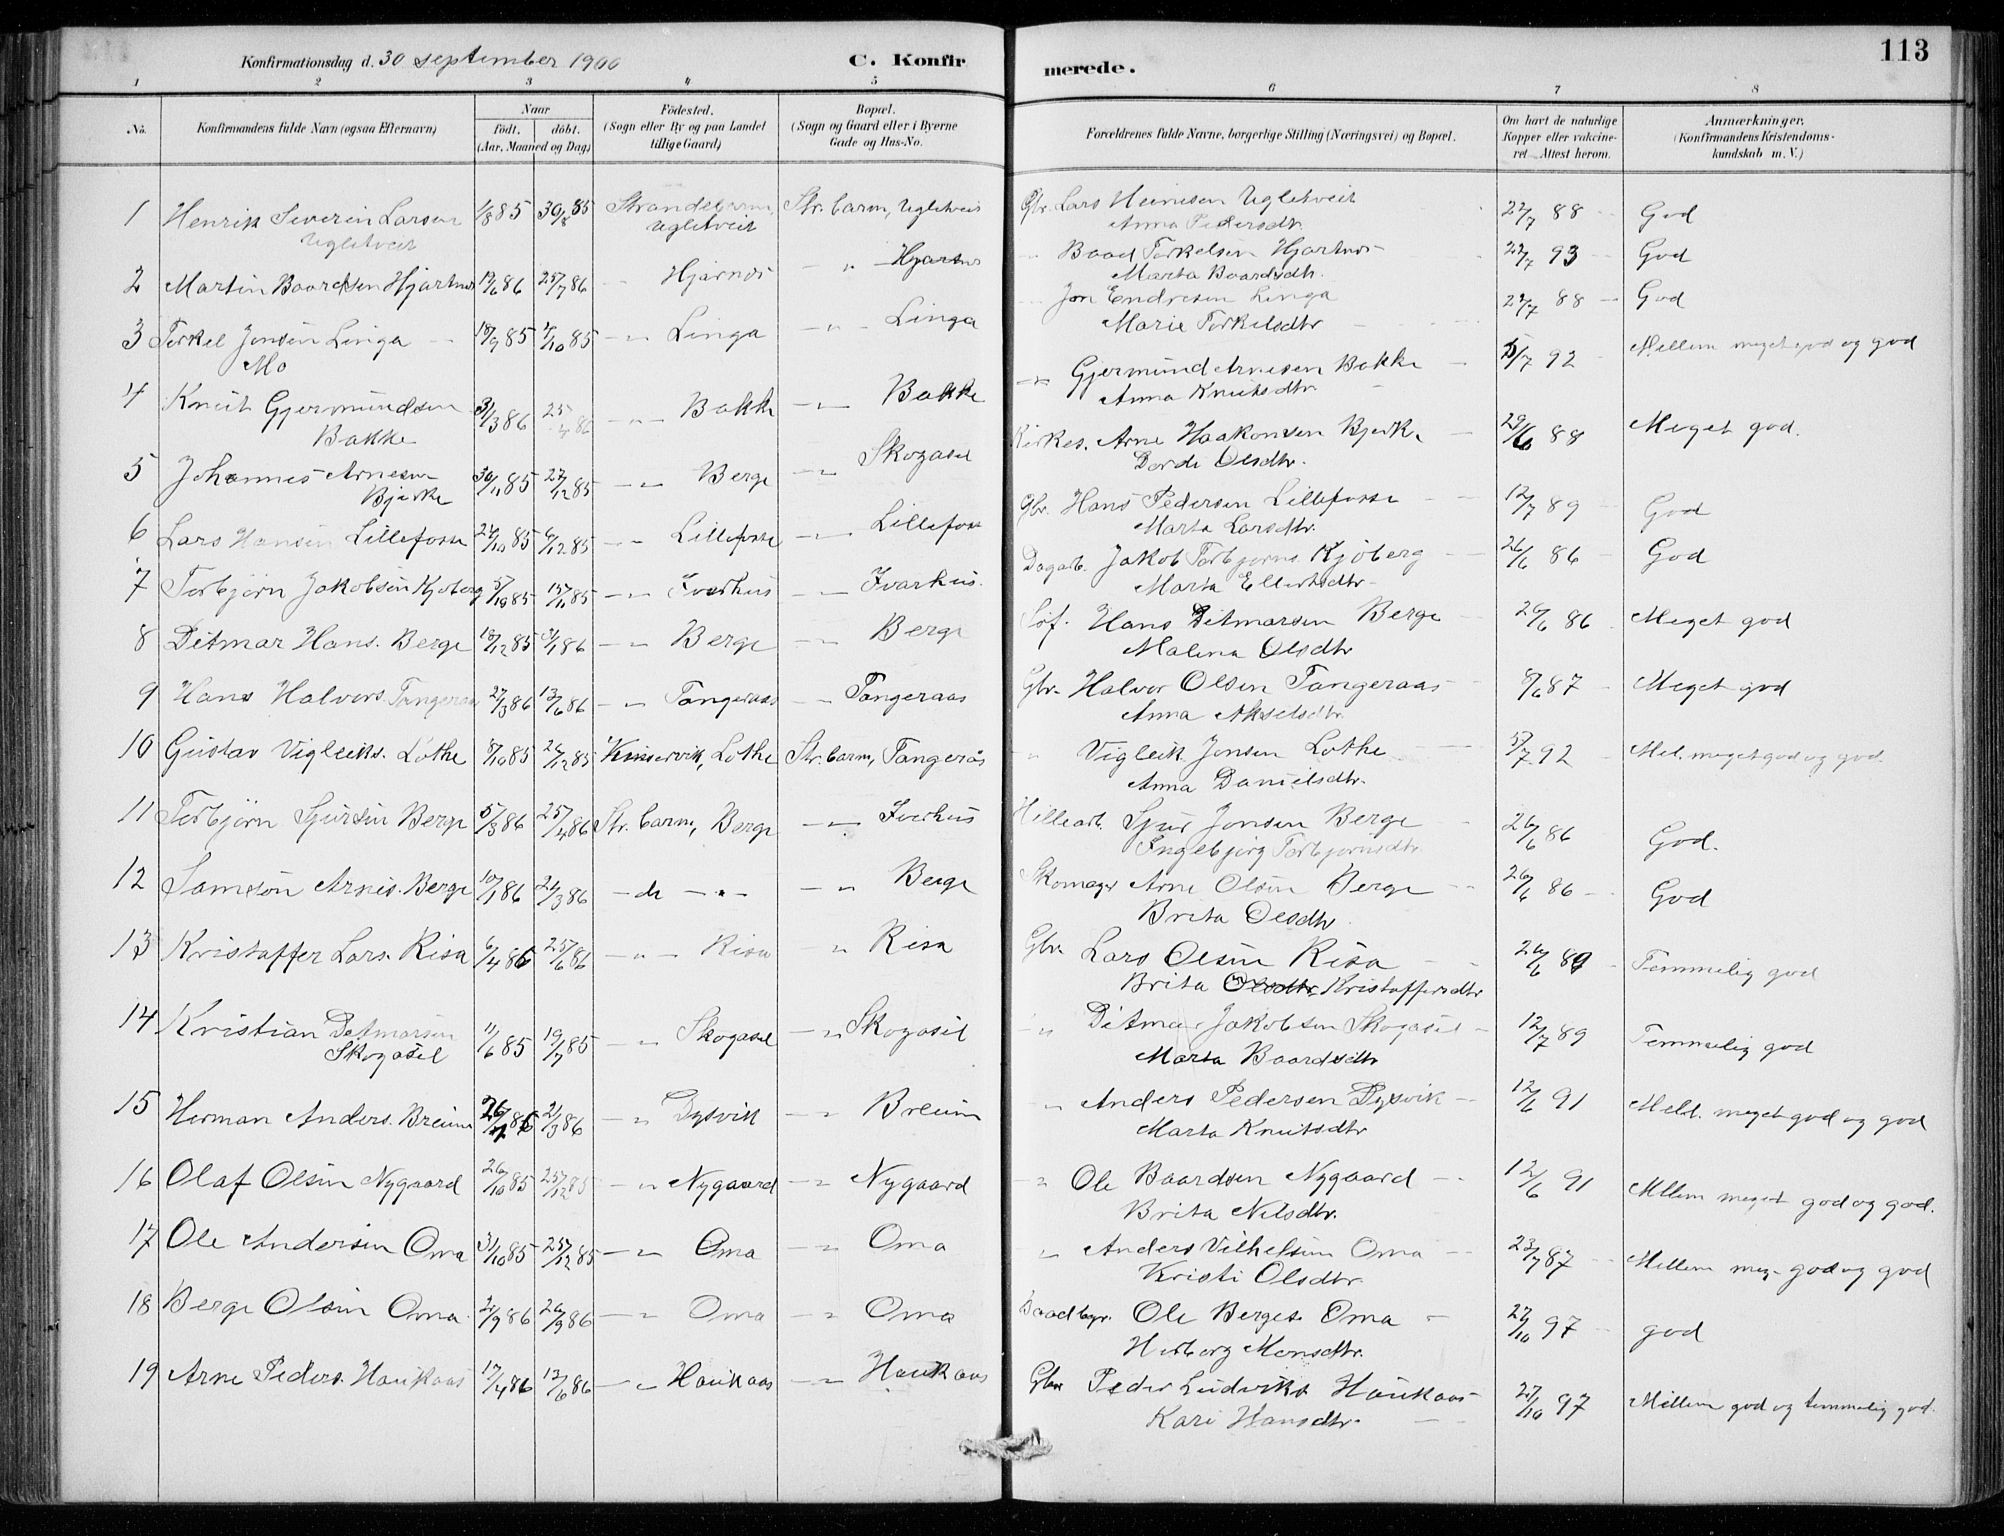 Konfirmationsdag d. 30 september 1900
C. Konfir
merede.
113
1 2 3 4 5 6 7 8
No.
Konfirmandens fulde Navn (ogsaa Efternavn)
Naar
födt. döbt.
(Aar, Maaned og Dag)
Födested.
(Sogn eller By og paa Landet tillige Gaard)
Bopæl.
(Sogn og Gaard eller i Byerne Gade og Hus-No.
Forældrenes fulde Navne, borgerlige Stilling (Næringsvei) og Bopæl.
Om havt de naturlige Kopper eller vakcineret – Attest herom.
Anmærkninger.
(Konfirmandens Kristendomskundskab m. V.)
1 Henrik Severin Larsen 1/8 85 30/8 85 Strandebarm, Str.barm, Ugletveit Gbr. Lars Heinesen Ugletveit 22/7 88 God
Ugletveit Ugletveit Anna Pedersdtr.
2 Martin Baardsen Hjartnes 19/6 86 25/7 86 Hjarnes -"- Hjartnes Baard Torkelsen Hjartnes 22/7 93 God
Marta Baardsdtr.
3 Torkel Jonsen Linga 18/9 85 4/10 85 -"- Linga -"- Linga Jon Endresen Linga 22/7 88 God
Mo Marie Torkelsdtr
4 Knut Gjermundsen 31/3 86 25/4 86 -"- Bakke -"- Bakke -"- Gjermund Arnesen Bakke 5/7 92 Mellem meget god og god
Bakke Anna Knutsdtr
5 Johannes Arnesen 30/11 85 27/12 85 -"- Berge -"- Skogasel Kirkes. Arne Haakonsen Bjerke 29/6 88 Meget god.
Bjerke Dordi Olsdtr.
6 Lars Hansen Lillefosse 24/10 85 6/12 85 -"- Lillefosse -"- Lillefosse Gbr. Hans Pedersen Lillefosse 12/7 89 God
Marta Larsdtr.
7 Torbjörn Jakobsen Kjoberg 5/10 85 15/11 85 -"- Iverhus -"- Ivarhus. Dagarb. Jakob Torbjörns. Kjöberg 26/6 86 God
Marta Ellertsdtr
8 Ditmar Hans. Berge 18/12 85 31/1 86 -"- Berge -"- Berge Hans Ditmarsen Berge 26/6 86 Meget god
Malena Olsdtr
9 Hans Halvors. Tangeraas 27/3 86 13/6 86 -"- Tangeraas -"- Tangeraas Gbr. Halvor Olsen Tangeraas 8/6 87 Meget god
Anna Akselsdtr.
10 Gustav Vigleiks. Lothe 8/10 85 26/12 85 Kinservik, Lothe Str.barm, Tangerås " Vigleik Jonsen Lothe 5/7 92 Mel. meget god og god.
Anna Danielsdtr.
11 Torbjörn Sjursen Berge 5/3 86 25/4 86 Str.barm, Berge -"- Iverhus Sjur Jonsen Berge 26/6 86 God.
Ingebjorg Torbjornsdtr
12 Samson Arnes. Berge 10/1 86 21/3 86 - do -"- -"- Berge Skomager Arne Olsen Berge 26/6 86 God
Brita Olsdtr.
13 Kristaffer Lars. Risa 6/4 86 25/6 86 -"- Risa -"- Risa Gbr. Lars Olsen Risa 26/6 89 Temmelig god
Brita Olsdtr. Kristaffersdtr
14 Kristian Ditmarsen 11/6 85 19/7 85 -"- Skogasel -"- Skogasel -"- Ditmar Jakobsen Skogasel 12/7 89 Temmelig god
Skogasel Marta Baardsdtr
15 Herman Anders. Breiun 26/1 86 21/3 86 -"- Dysvik -"- Breiun " Anders Pedersen Dysvik 12/6 91 Mell. meget god og god
Marta Knutsdtr
16 Olaf Olsen Nygaard 26/10 85 25/12 85 -"- Nygaard -"- Nygaard " Ole Baardsen Nygaard 12/6 91 Mllem meget god og god.
Brita Nilsdtr.
17 Ole Andersen Oma 31/10 85 25/12 85 -"- Oma -"- Oma " Anders Vilhelsen Oma 23/7 87 Mellem meg. god og god
Kristi Olsdtr
18 Berge Olsen Oma 2/9 86 26/9 86 -"- Oma -"- Oma Baadbyr. Ole Berges. Oma 27/10 97 god
Herborg Monsdtr.
19 Arne Peders. Haukaas 17/4 86 12/6 86 -"- Haukaas -"- Haukaas Gbr. Peder Ludviks Haukaas 27/10 97 Millem god og temmelig god.
Kari Hansdtr.